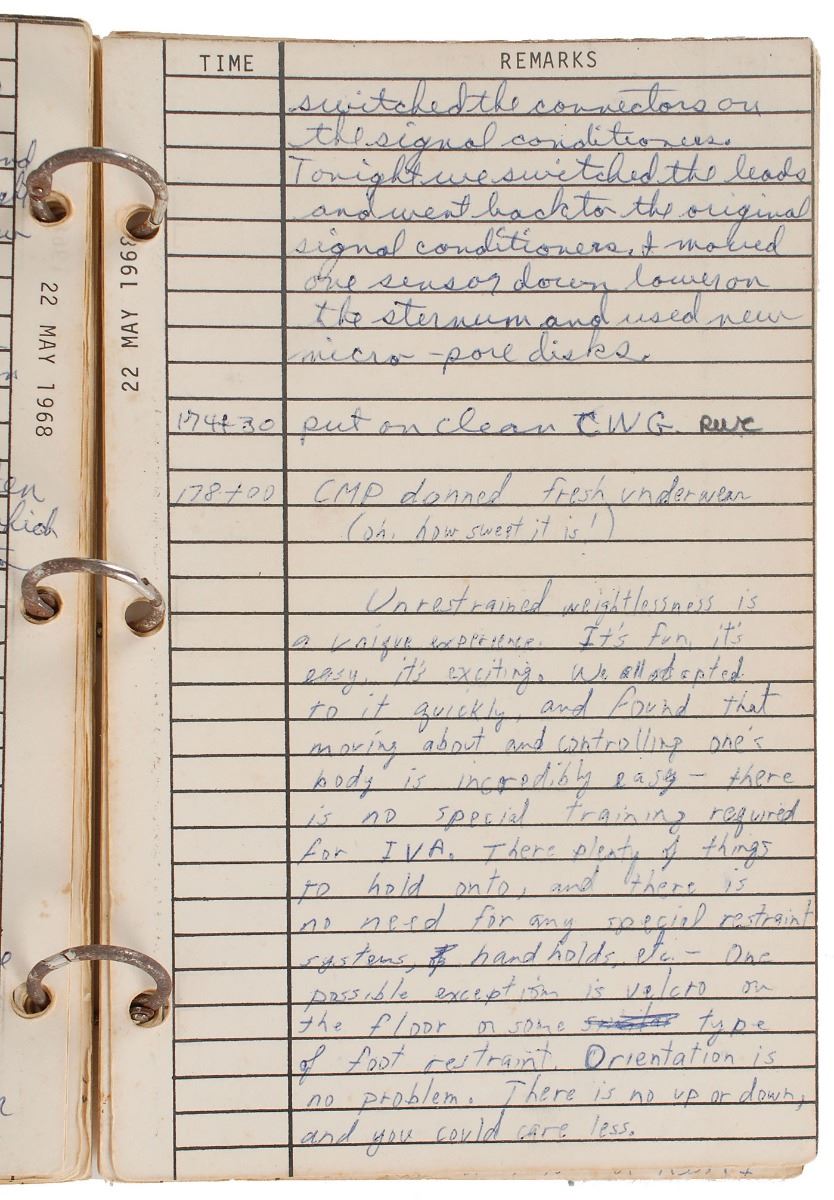 TIME REMARKS
switched the connectors on
the signal conditioners.
Tonight we switched the leads
and went back to the original
signal conditioners. I moved
one sensor down lower on
the sternum and used new
micro-pore disks.
174+30 put on clean CWG. RWC
178+00 CMP donned fresh underwear
(oh, how sweet it is!)
Unrestrained weightlessness is
a unique experience. It's fun, it's
easy, it's exciting. We all adapted
to it quickly, and found that
moving about and controlling one's
body is incredibly easy — there
is no special training required
for IVA. There plenty of things
to hold onto, and there is
no need for any special restraint
systems, hand holds, etc. — One
possible exception is velcro on
the floor or some type
of foot restraint. Orientation is
no problem. There is no up or down,
and you could care less.
22 MAY 1968
22 MAY 1968